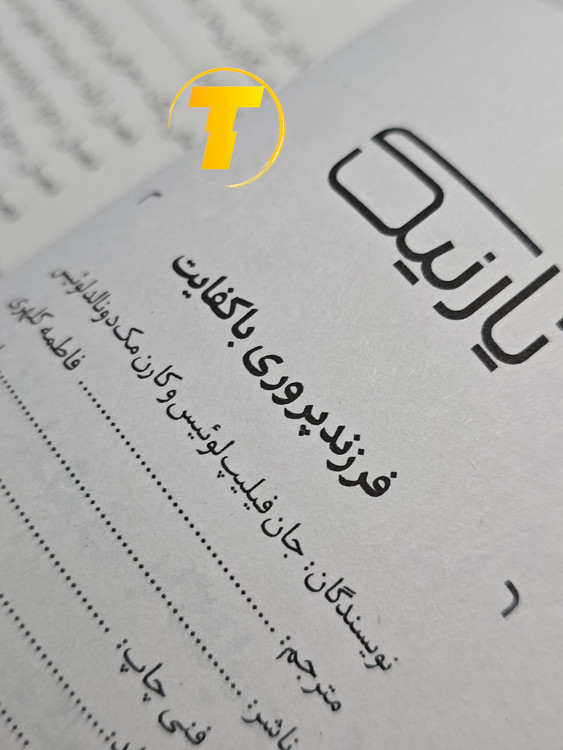 T
یارنیک
فرزندپروری باکفایت
نویسندگان: جان فیلیپ لوئیس و کارن مک دونالد لوئیس
مترجم: فاطمه کلهری
ناشر:
فنی چاپ: